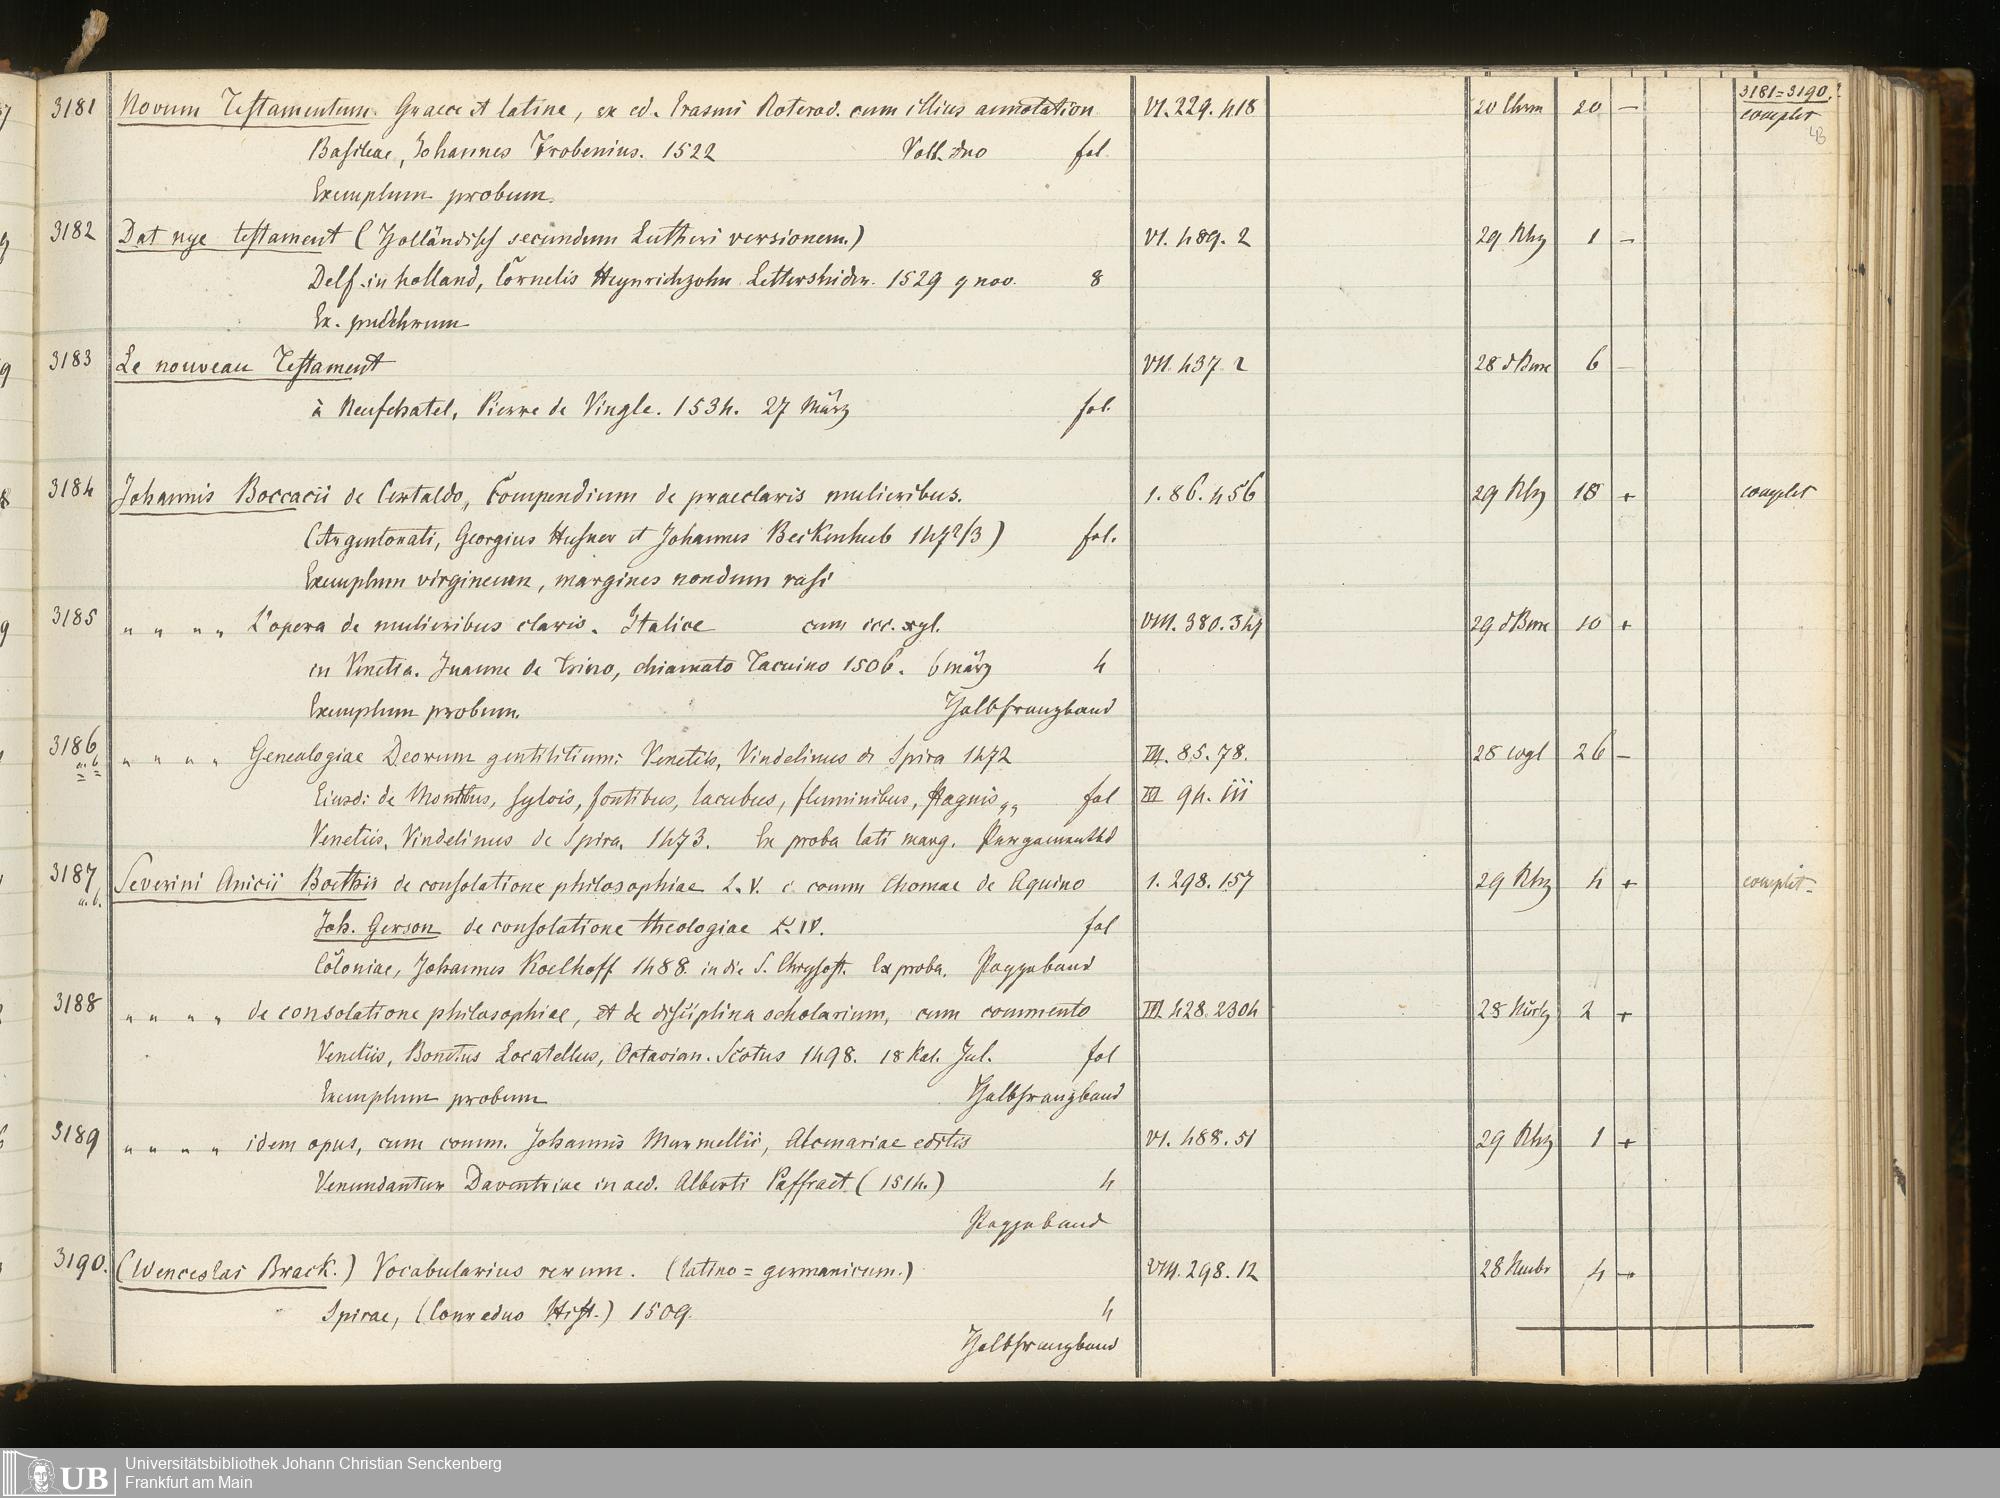 3181 Novum Testamentum. Graece et latine, ex ed. Erasmi Roterod. cum illius annotation. VI. 229. 418 20 20 — 3181=3190.
complet
Basileae, Johannes Frobenius. 1522 Voll. duo fol.
Exemplum probum.
3182 Dat nye testament (Holländisch secundum Lutheri versionem.) VI. 489. 2 29 Rhz 1 —
Delf in holland, Cornelis Heynrichzohn Lettersnider. 1529 9 nov. 8
Ex. pulchrum
3183 Le nouveau Testament VII. 437. 2 28 6 —
à Neufchatel, Pierre de Vingle. 1534. 27 März fol.
3184 Johannis Boccacii de Certaldo, Compendium de praeclaris mulieribus. 1. 86. 456 29 Rhz 18 + complet
(Argentorati, Georgius Husner et Johannes Beckenhub 1472/3) fol.
Exemplum virgineum, margines nondum rasi
3185 " " " " L'opera de mulieribus claris. Italice cum icc. xyl. VIII. 380. 349 29 10 +
in Venetia. Juanne de Trino, chiamato Tacuino 1506. 6 März 4
Exemplum probum. Halbfranzband
3186 a. b. " " " " Genealogiae Deorum gentilitium: Venetiis, Vindelinus de Spira 1472 III. 85. 78. 28 26 —
Eiusd: de Montibus, sylvis, fontibus, lacubus, fluminibus, stagnis „ „ fol III 94. iii
Venetiis, Vindelinus de Spira. 1473. Ex proba lati marg. Pergamentbd
3187 a. b. Severini Anicii Boethii de consolatione philosophiae L. V. c. comm Thomae de Aquino 1. 298. 157 29 Rhz 4 + complet
Joh. Gerson de consolatione theologiae L. IV. fol
Coloniae, Johannes Koelhoff 1488. in die S. Chrysost. Ex proba. Pappband
3188 " " " " de consolatione philosophiae, et de disciplina scholarium, cum commento III 428. 2304 28 2 +
Venetiis, Bonetus Locatellus, Octavian. Scotus 1498. 18 Kal. Jul. fol
Exemplum probum Halbfranzband
3189 " " " " idem opus, cum comm. Johannis Murmellii, Alcmariae editis VI. 488. 51 29 Rhz 1 +
Venundantur Daventriae in aed. Alberti Paffraet. (1514.) 4
Pappband
3190. (Wenceslai Brack.) Vocabularius rerum. (latino = germanicum.) VIII. 298. 12 28 4 +
Spirae, (Conradus Hist.) 1509. 4
Halbfranzband
UB Universitätsbibliothek Johann Christian Senckenberg
Frankfurt am Main